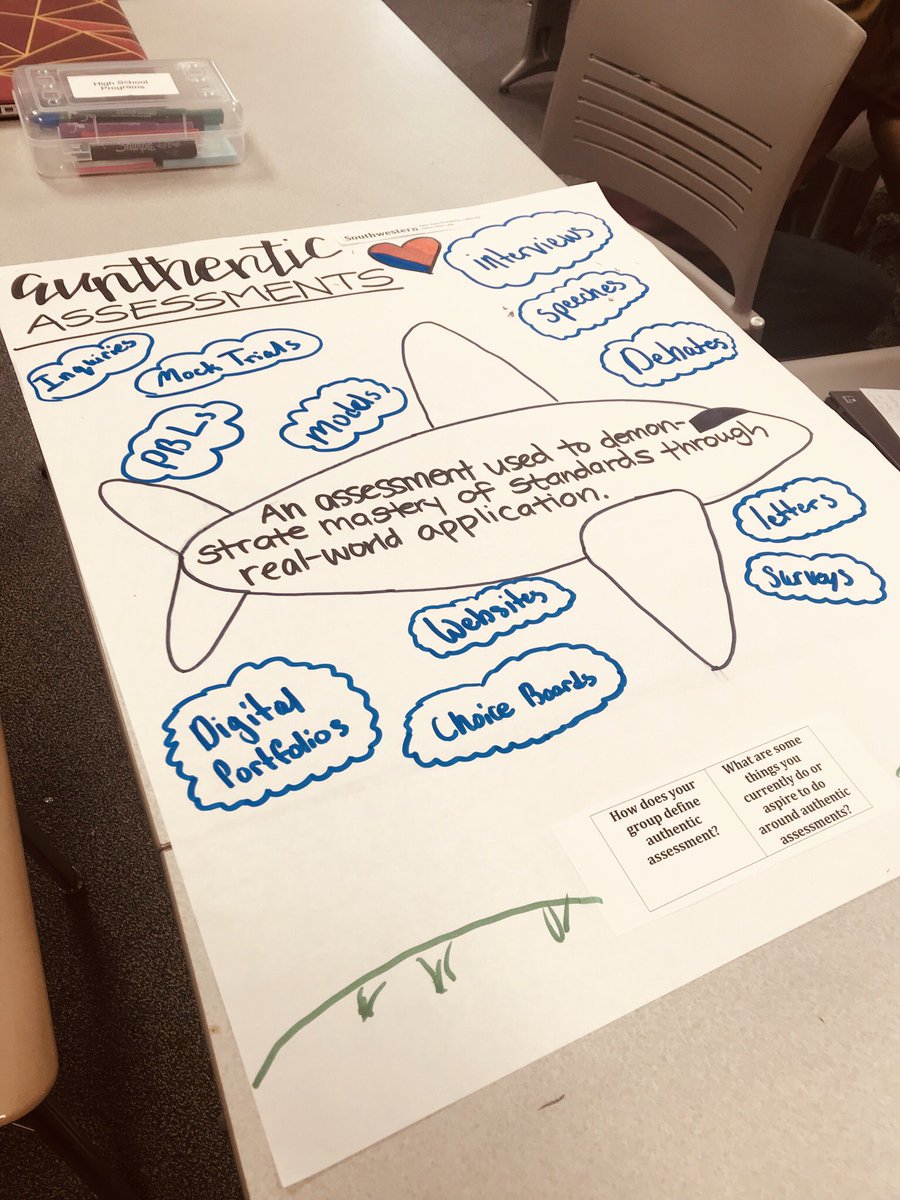 High School
Programs
Southwestern
aunthentic
ASSESSMENTS
interviews
speeches
Debates
Inquiries
Mock Trials
PBLs
Models
An assessment used to demon-
strate mastery of standards through
real-world application.
letters
Surveys
Websites
Digital
Portfolios
Choice Boards
How does your
group define
authentic
assessment?
What are some
things you
currently do or
aspire to do
around authentic
assessments?